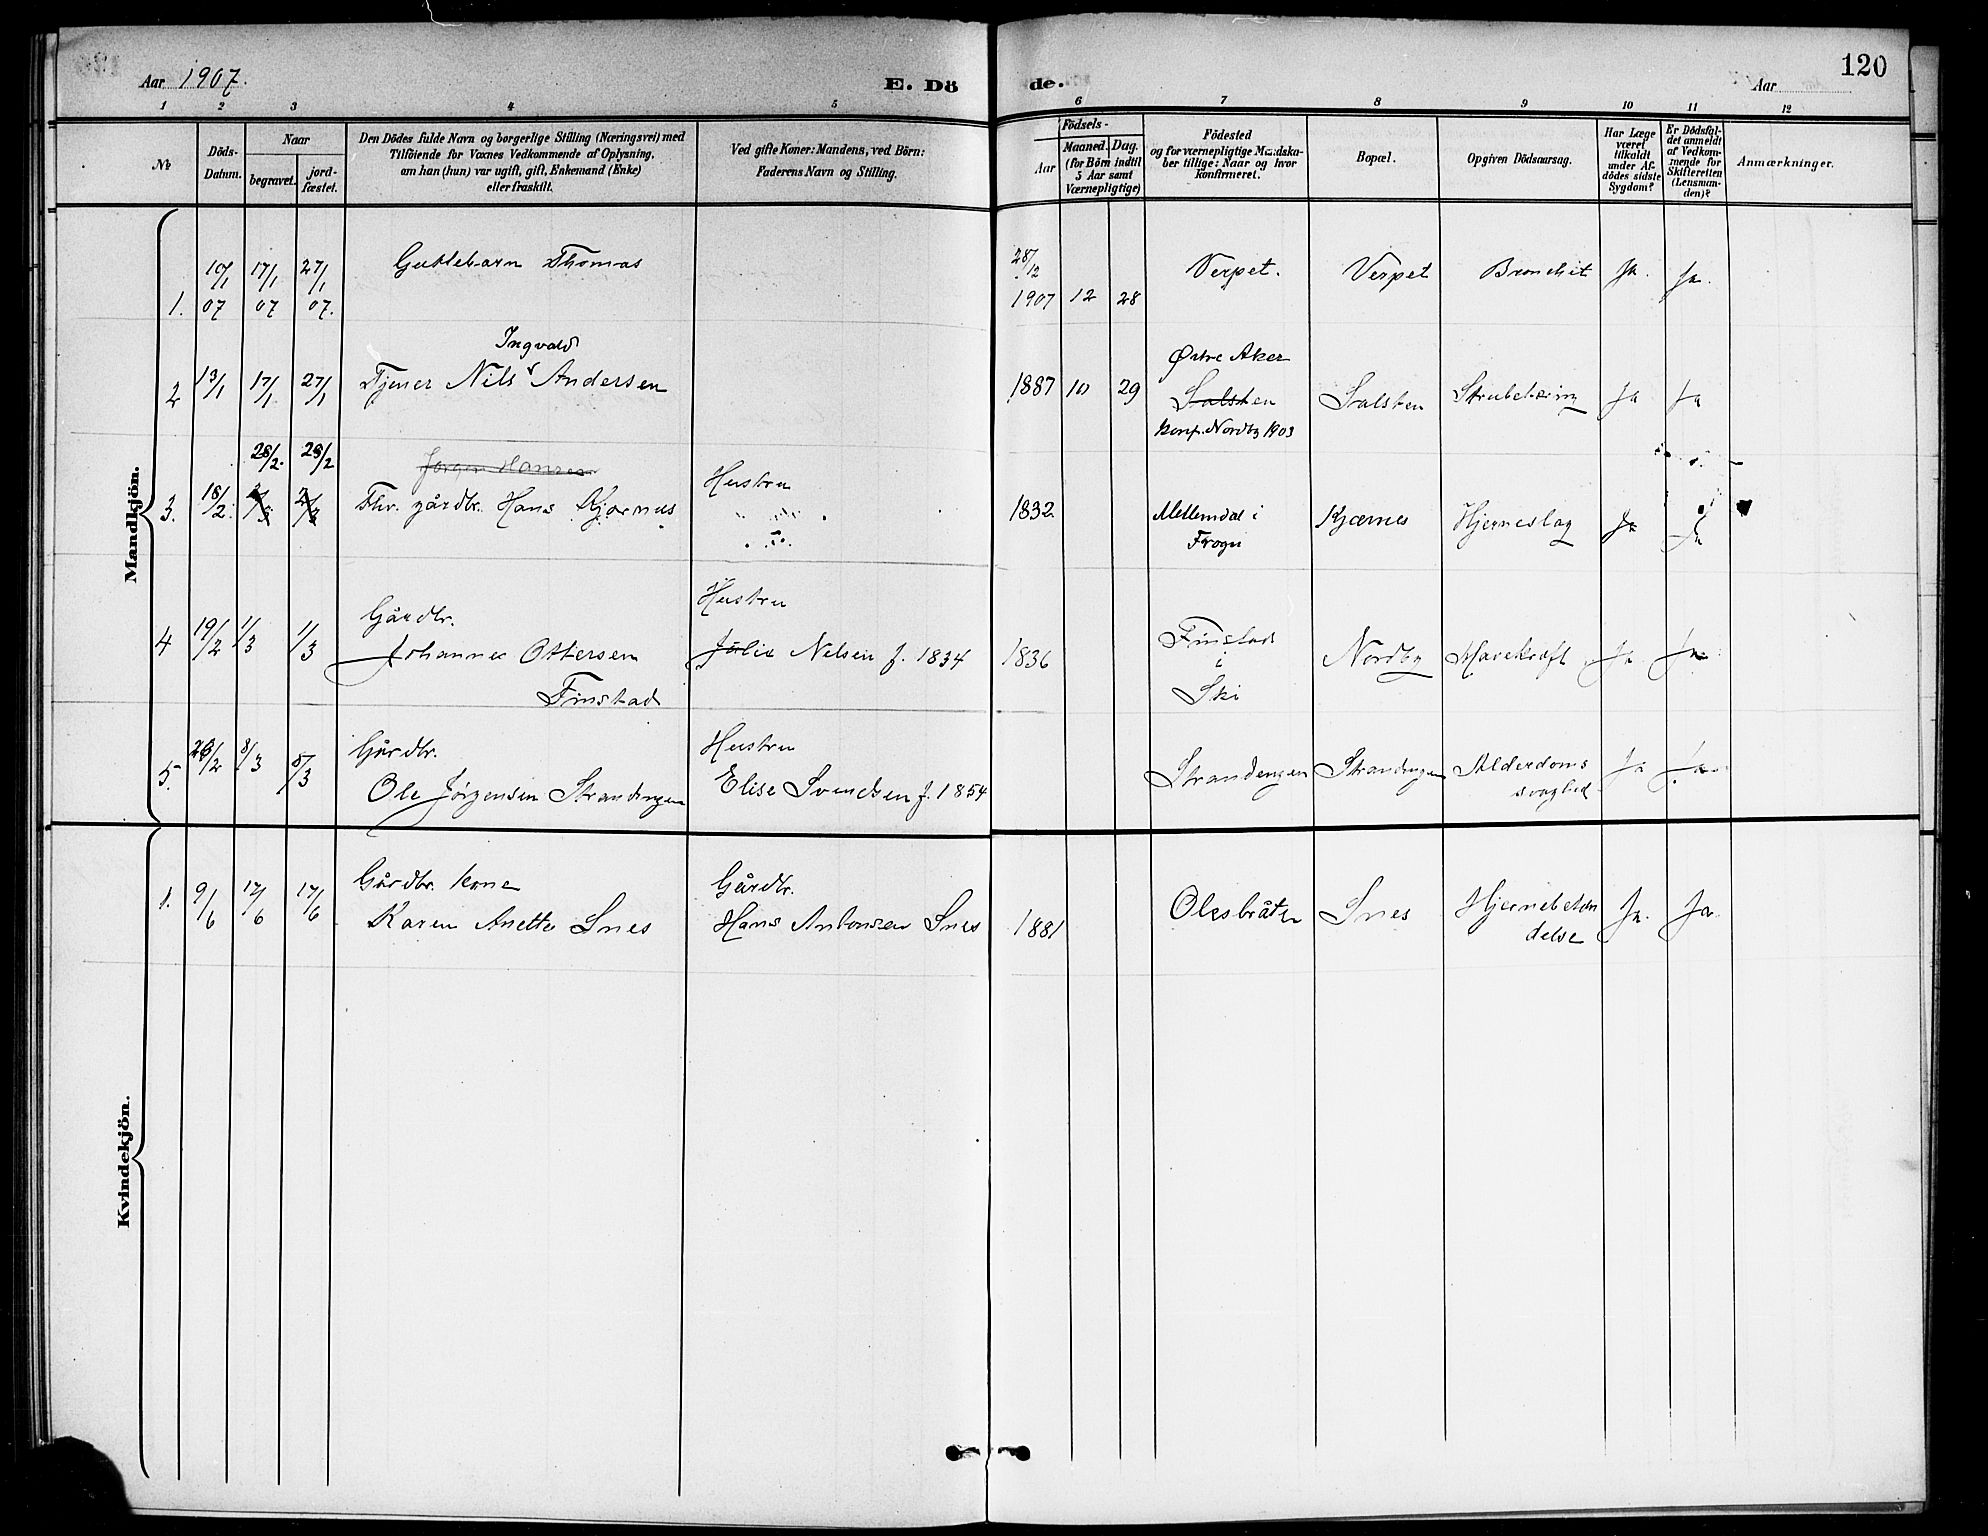 Aar 1907.
E. Dö
de.
Aar
120
1 2 3 4 5
6 7 8 9 10 11 12
№
Döds-
Datum.
Naar
begravet.
jord-
fæstet.
Den Dödes fulde Navn og borgerlige Stilling (Næringsvei) med
Tilföiende for Voxnes Vedkommende af Oplysning,
om han (hun) var ugift, gift, Enkemand (Enke)
eller fraskilt.
Ved gifte Koner: Mandens, ved Börn:
Faderens Navn og Stilling.
Födsels-
Aar
Maaned. Dag.
(for Börn indtil
5 Aar samt
Værnepligtige)
Födested
og for værnepligtige Mandska-
ber tillige: Naar og hvor
konfirmeret.
Bopæl.
Opgiven Dödsaarsag.
Har Læge
været
tilkaldt
under Af-
dödes sidste
Sygdom?
Er Dödsfal-
det anmeldt
af Vedkom-
mende for
Skifteretten
(Lensman-
den)?
Anmærkninger.
Mandkjön.
10/1 17/1 27/1 Guttebarn Thomas 28/12 Verpet. Verpet Bronchit Ja. Ja.
1. 07 07 07. 1907 12 28
Ingvald Østre Aker
2 13/1 17/1 27/1 Tjener Nils Andersen 1887 10 29 Salsten Salsten Strubehoring Ja Ja
Konf. Nordby 1903
28/2. 29/2 Jørgen Hansen
Hustru
3. 18/2. Fhv. gårdbr. Hans Kjærnes 1832 Mellemdal i Kjærnes Hjerneslag Ja Ja
Frogn
Gårdbr. Hustru
4 19/2 1/3 1/3 Johannes Ottersen Julie Nelsen f. 1834 1836 Finstad Nordby Mavekræft Ja Ja
Finstad i
Ski
Gårdbr. Hustru
5. 26/2 8/3 8/3 Ole Jørgensen Strandengen Elise Svendsen f. 1854 Strandengen Strandengen Alderdoms Ja Ja
svaghed
Kvindekjön.
Gårdbr. kone Gårdbr.
1. 9/6 17/6 17/6 Karen Anette Snes Hans Antonsen Snes 1881 Olesbråten Snes Hjernebetæn Ja. Ja.
delse